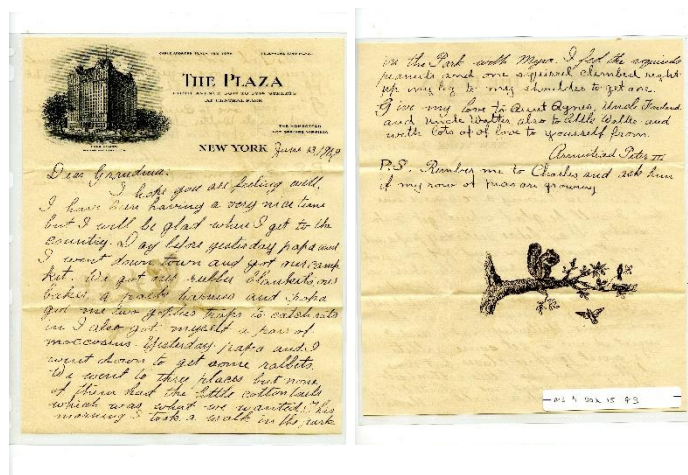 THE PLAZA
FIFTH AVENUE 58TH TO 59TH STREETS
AT CENTRAL PARK
NEW YORK June 13, 1909
Dear Grandma:
I hope you are feeling well.
I have been having a very nice time
but I will be glad when I get to the
country. Day before yesterday papa and
I went down town and got our camp
kit. We got our rubber blankets our
baker, a pack harness and papa
got me two gopher traps to catch rats
in I also got myself a pair of
moccasins. Yesterday papa and I
went down to get some rabbits.
We went to three places but none
of them had the little cottontails
which was what we wanted. This
morning I took a walk in the park
in the Park with Mayer. I fed the squirrels
peanuts and one squirrel climbed right
up my leg to my shoulder to get one.
Give my love to Aunt Agnes, Uncle
and Uncle Walter also to little Walter and
with lots of of love to yourself from
Armistead Peter III
P.S. Rember me to Charles and ask him
if my row of peas are growing